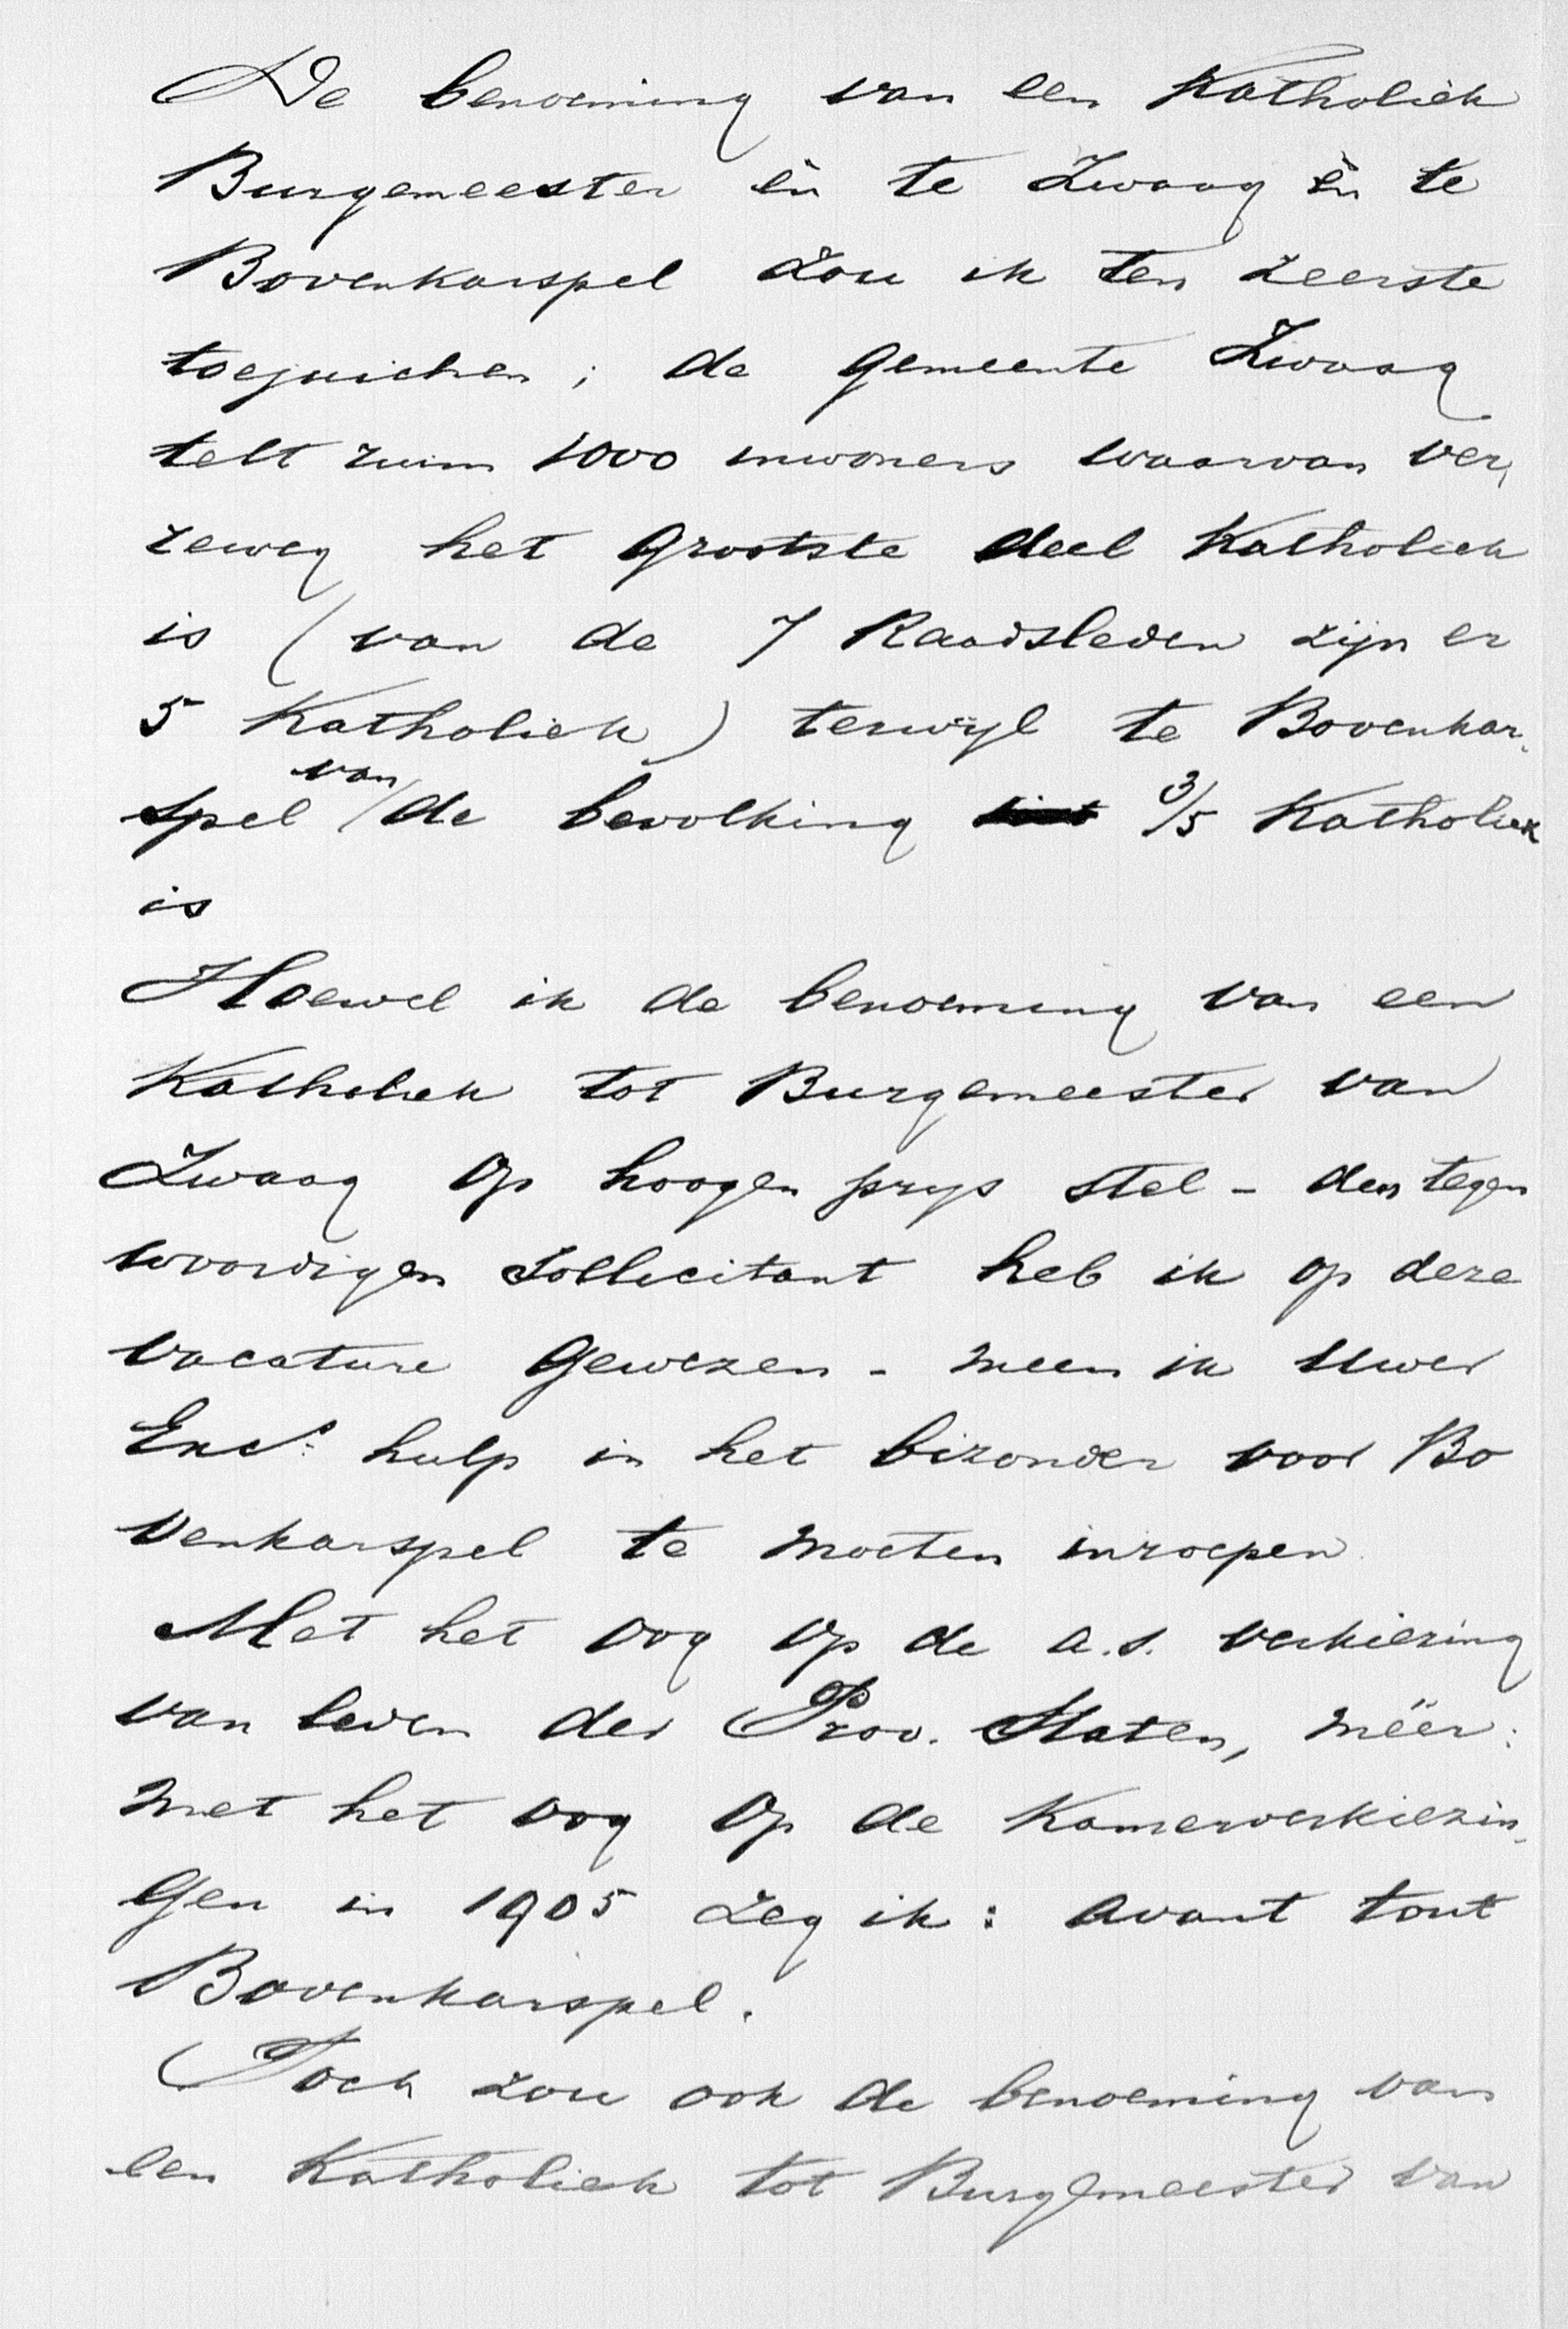 De benoeming van een Katholiek
Burgemeester èn te Zwaag èn te
Bovenkarspel zou ik ten zeerste
toejuichen; de gemeente Zwaag
telt ruim 1000 inwoners waarvan ver,
reweg het grootste deel Katholiek
is (van de 7 Raadsleden zijn er
5 Katholiek) terwijl te Bovenkar-
spel van de bevolking 3/5 Katholiek
is
Hoewel ik de benoeming van een
Katholiek tot Burgemeester van
Zwaag op hoogen prijs stel - den tegen
woordigen Sollicitant heb ik op deze
vacature gewezen - meen ik Uwer
Exc.s hulp in het bizonder voor Bo
venkarspel te moeten inroepen.
Met het oog op de a.s. verkiezing
van leden der Prov. Staten, méér:
met het oog op de Kamerverkiezin-
gen in 1905 zeg ik: avant tout
Bovenkarspel.
Toch zou ook de benoeming van
een Katholiek tot Burgemeester van